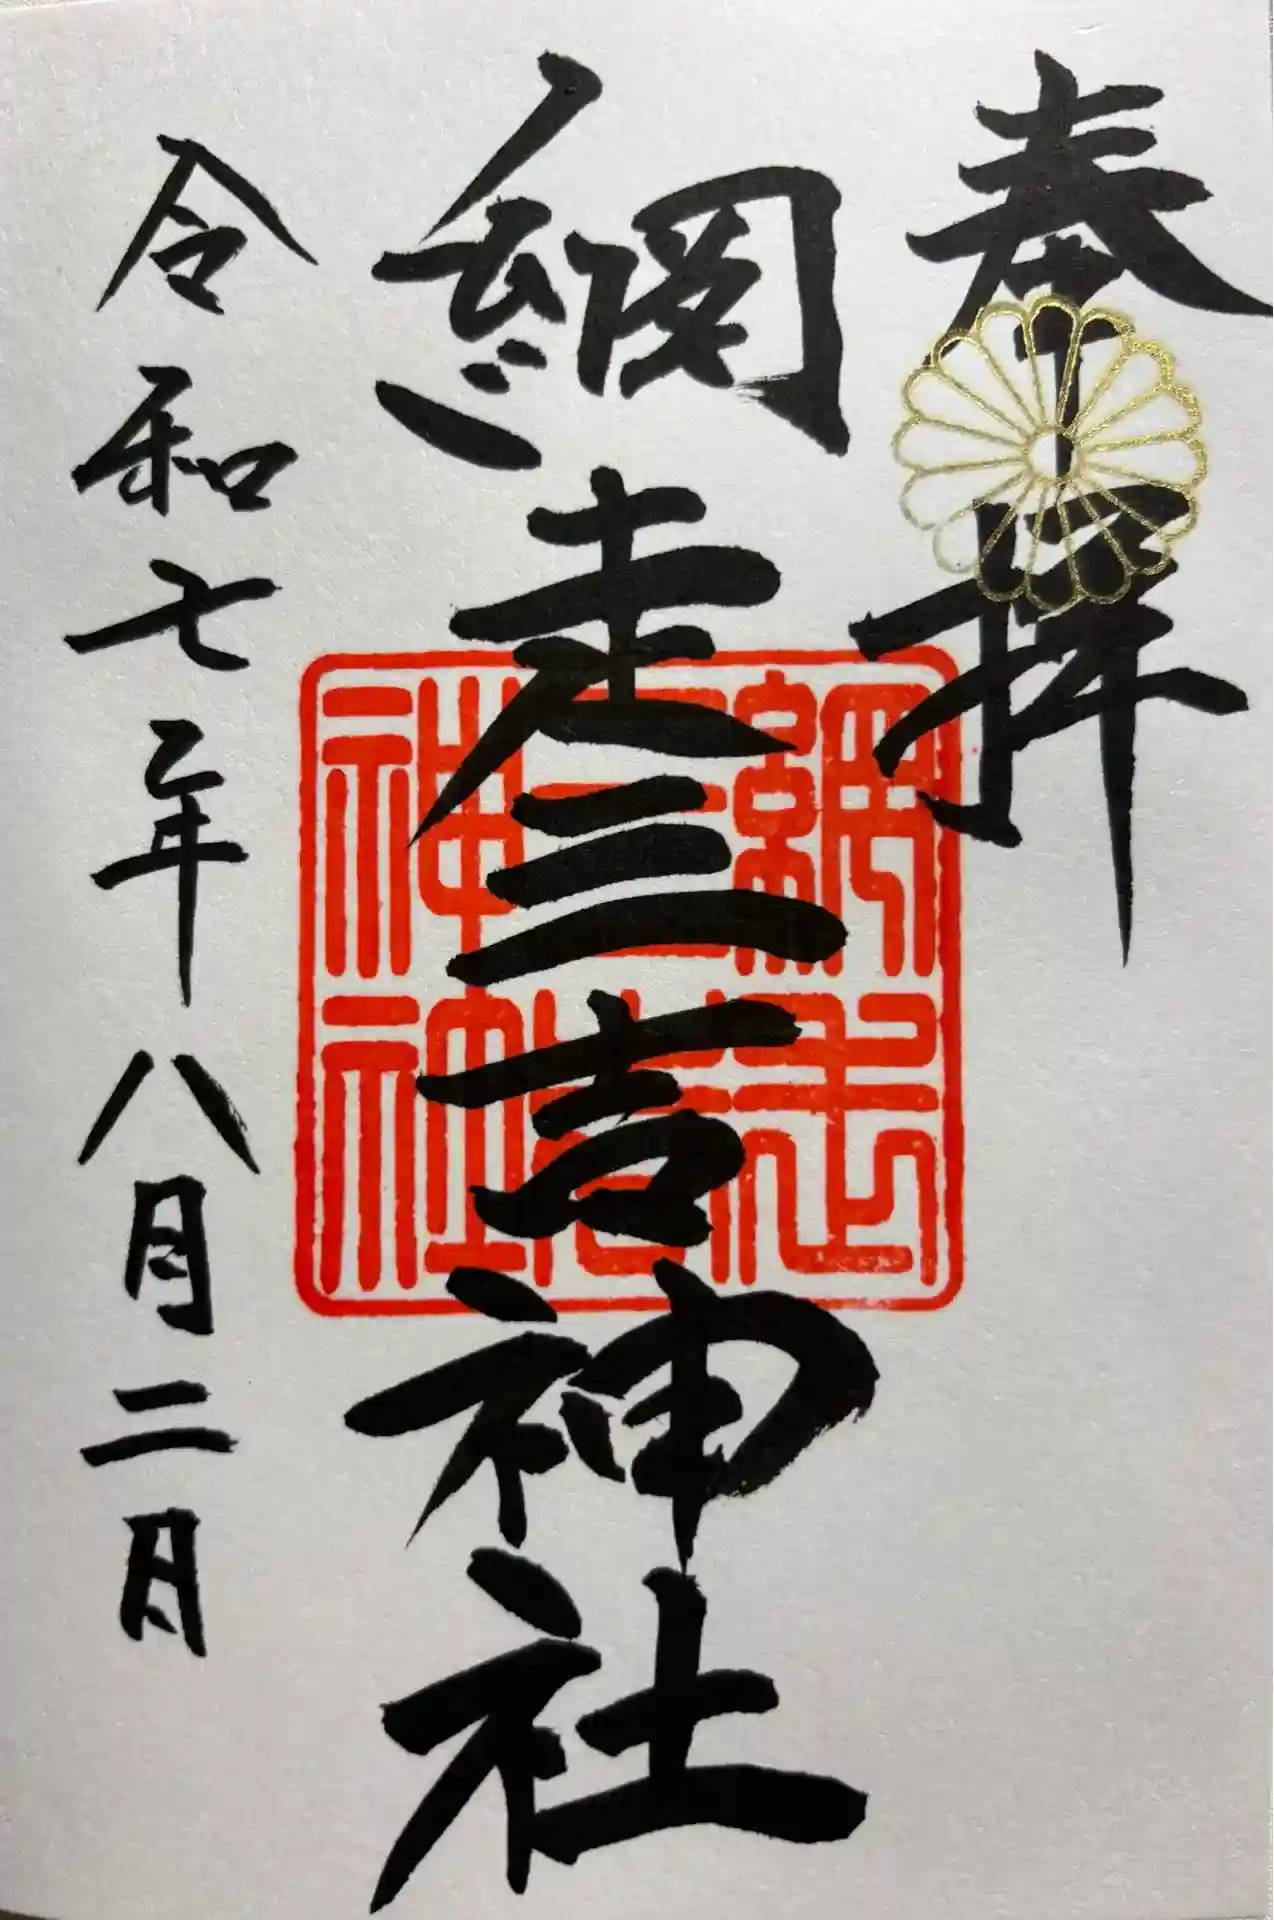 奉拝
網走三吉神社
網走
三吉
神社
令和七年八月二日